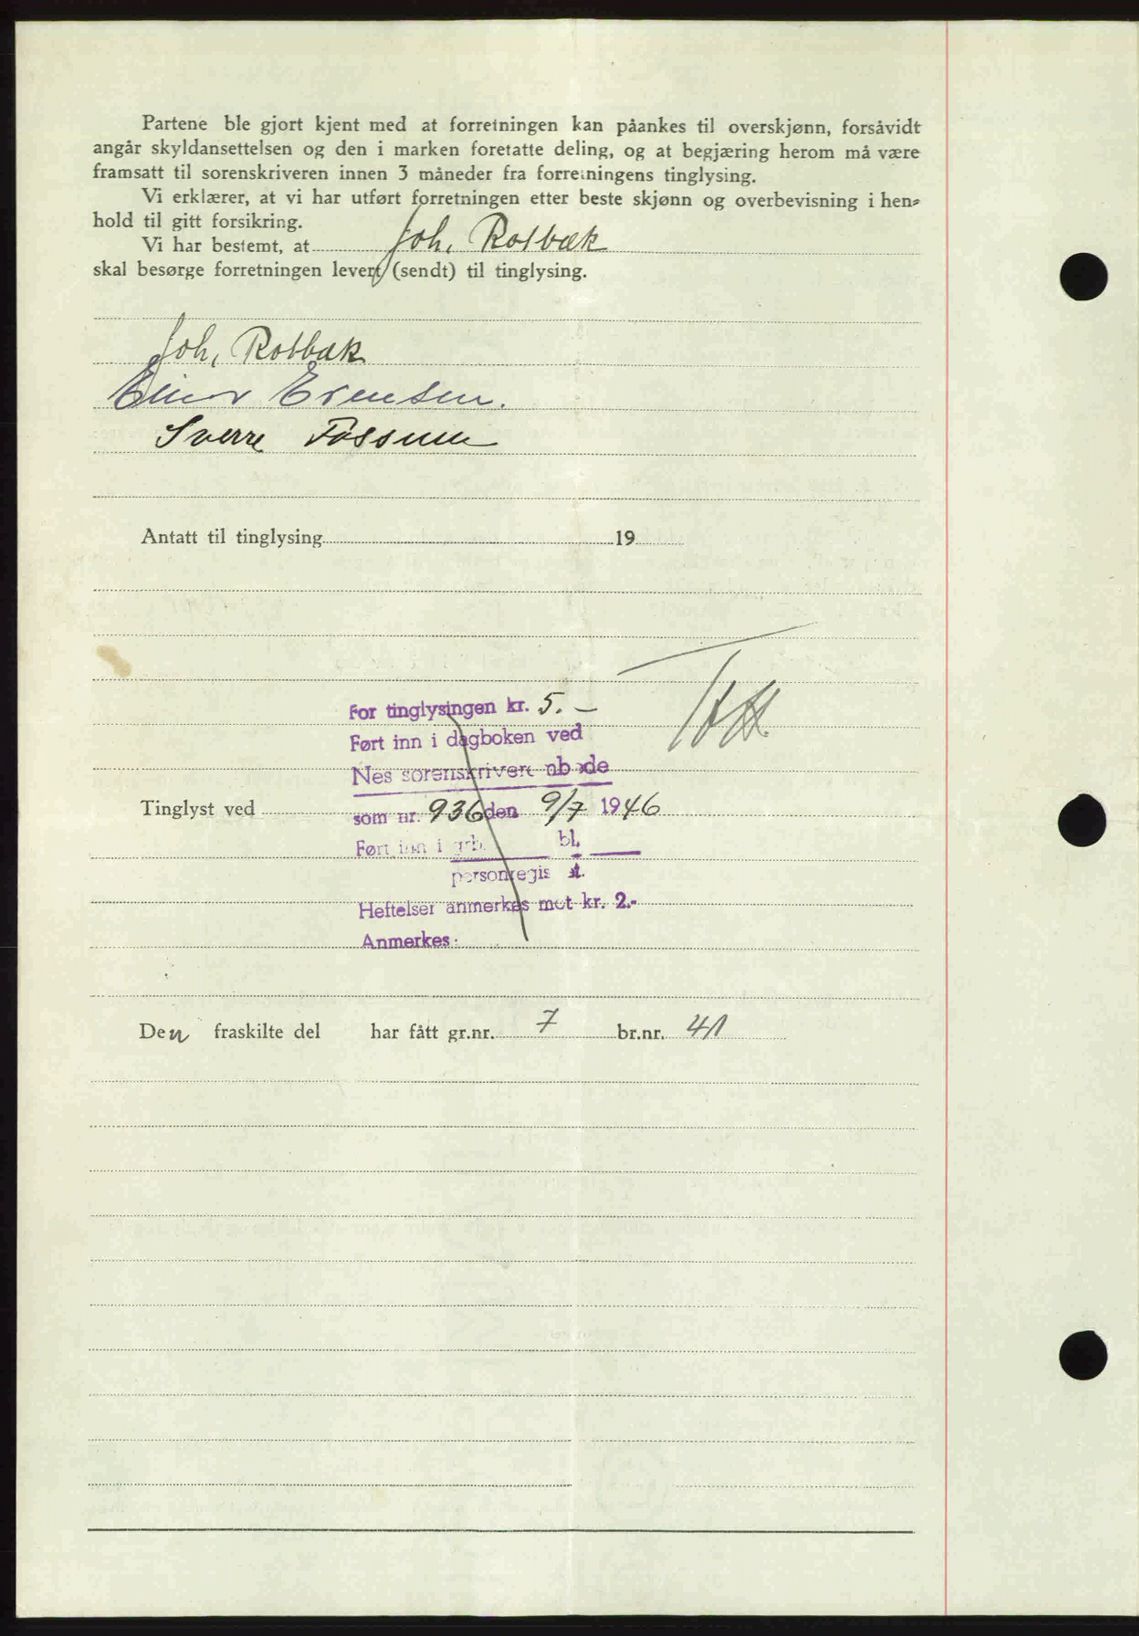 Partene ble gjort kjent med at forretningen kan påankes til overskjønn, forsåvidt
angår skyldansettelsen og den i marken foretatte deling, og at begjæring herom må være
framsatt til sorenskriveren innen 3 måneder fra forretningens tinglysing.
Vi erklærer, at vi har utført forretningen etter beste skjønn og overbevisning i hen-
hold til gitt forsikring.
Vi har bestemt, at Joh. Rotbæk
skal besørge forretningen levert (sendt) til tinglysing.
Joh. Rotbæk
Einar Evensen.
Sverre Fossum
Antatt til tinglysing 19
For tinglysingen kr. 5.-
Ført inn i dagboken ved
Nes sorenskriverembede
Tinglyst ved som nr. 936 den 9/7 1946
Ført inn i grb. bl.
personregist.
Heftelser anmerkes mot kr. 2.-
Anmerkes:
Den fraskilte del har fått gr.nr. 7 br.nr. 41